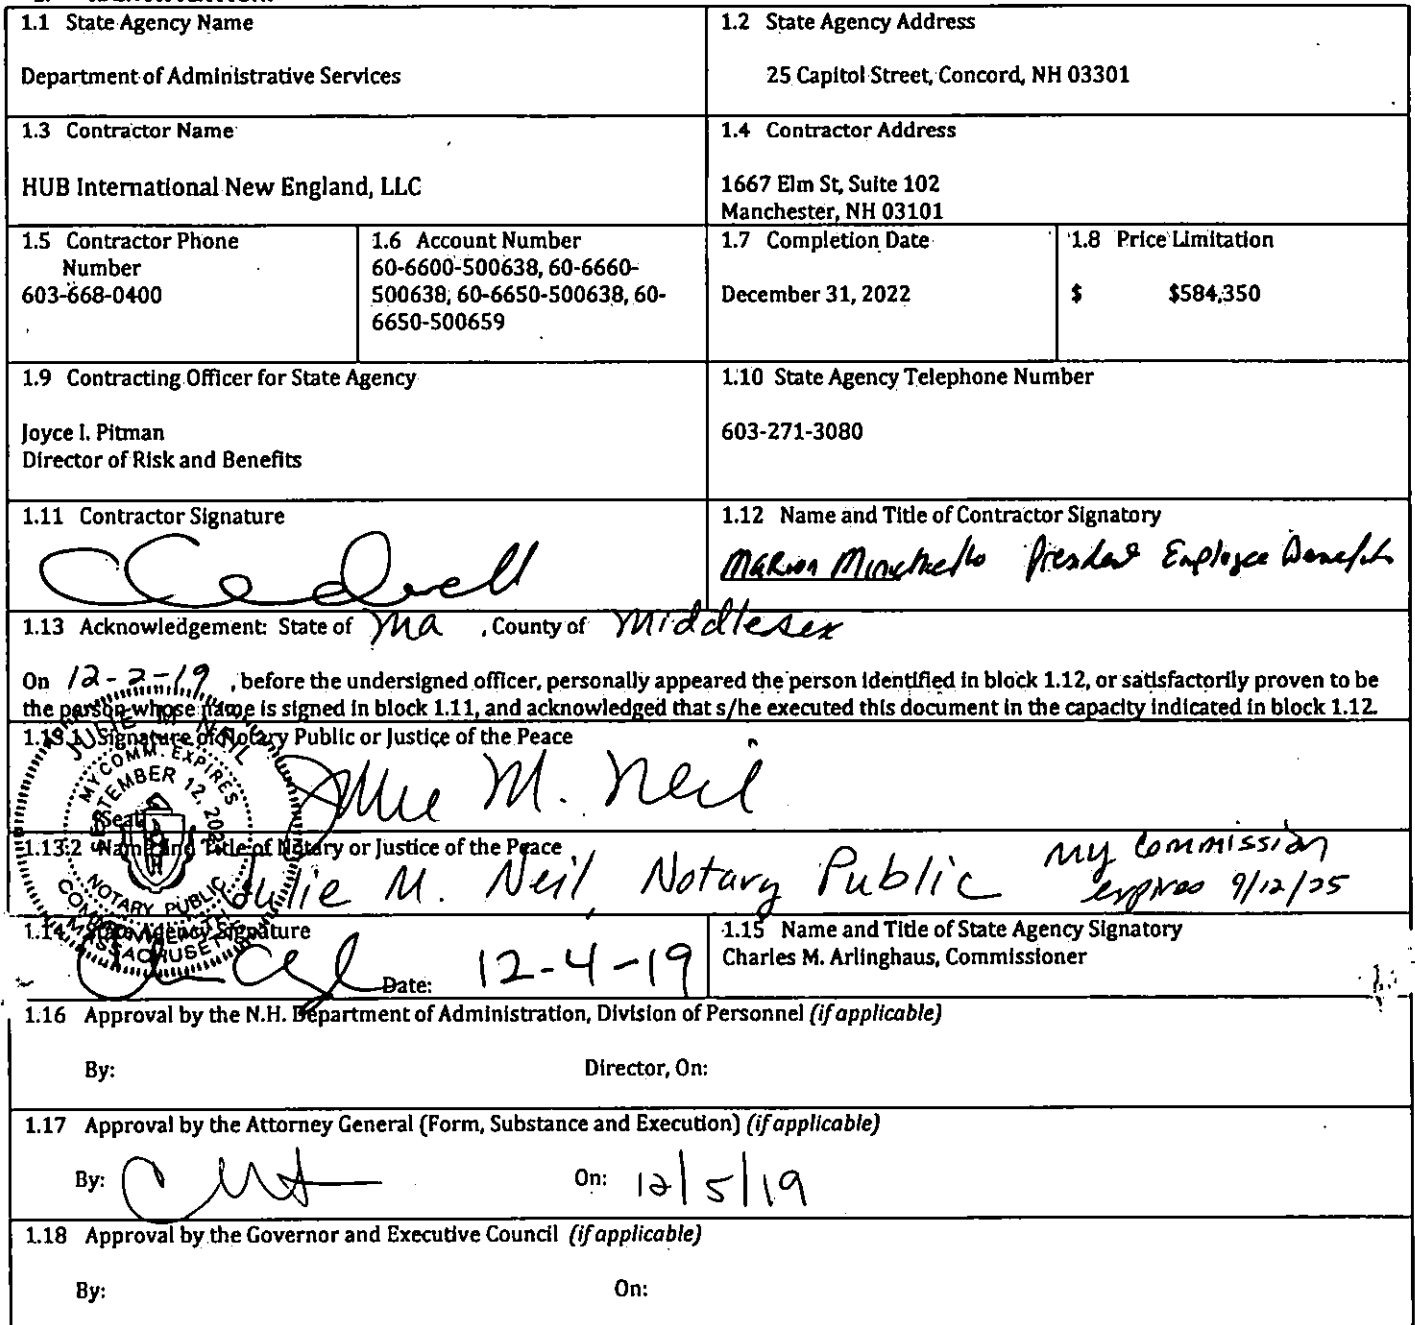 1.1 State Agency Name
Department of Administrative Services
1.2 State Agency Address
25 Capitol Street, Concord, NH 03301
1.3 Contractor Name
HUB International New England, LLC
1.4 Contractor Address
1667 Elm St, Suite 102
Manchester, NH 03101
1.5 Contractor Phone
Number
603-668-0400
1.6 Account Number
60-6600-500638, 60-6660-
500638, 60-6650-500638, 60-
6650-500659
1.7 Completion Date
December 31, 2022
1.8 Price Limitation
$ $584,350
1.9 Contracting Officer for State Agency
Joyce I. Pitman
Director of Risk and Benefits
1.10 State Agency Telephone Number
603-271-3080
1.11 Contractor Signature
1.12 Name and Title of Contractor Signatory
President Employee Benefits
1.13 Acknowledgement: State of Ma , County of Middlesex
On 12-2-19 , before the undersigned officer, personally appeared the person identified in block 1.12, or satisfactorily proven to be
the person whose name is signed in block 1.11, and acknowledged that s/he executed this document in the capacity indicated in block 1.12.
1.13.1 Signature of Notary Public or Justice of the Peace
Julie M. Neil
[Seal]
JULIE M NEIL
MY COMM. EXPIRES
SEPTEMBER 12,
NOTARY PUBLIC
COMMONWEALTH OF
MASSACHUSETTS
1.13.2 Name and Title of Notary or Justice of the Peace
Julie M. Neil, Notary Public
My commission
expires 9/12/25
1.14 State Agency Signature
Date: 12-4-19
1.15 Name and Title of State Agency Signatory
Charles M. Arlinghaus, Commissioner
1.16 Approval by the N.H. Department of Administration, Division of Personnel (if applicable)
By: Director, On:
1.17 Approval by the Attorney General (Form, Substance and Execution) (if applicable)
By: On: 12/5/19
1.18 Approval by the Governor and Executive Council (if applicable)
By: On: